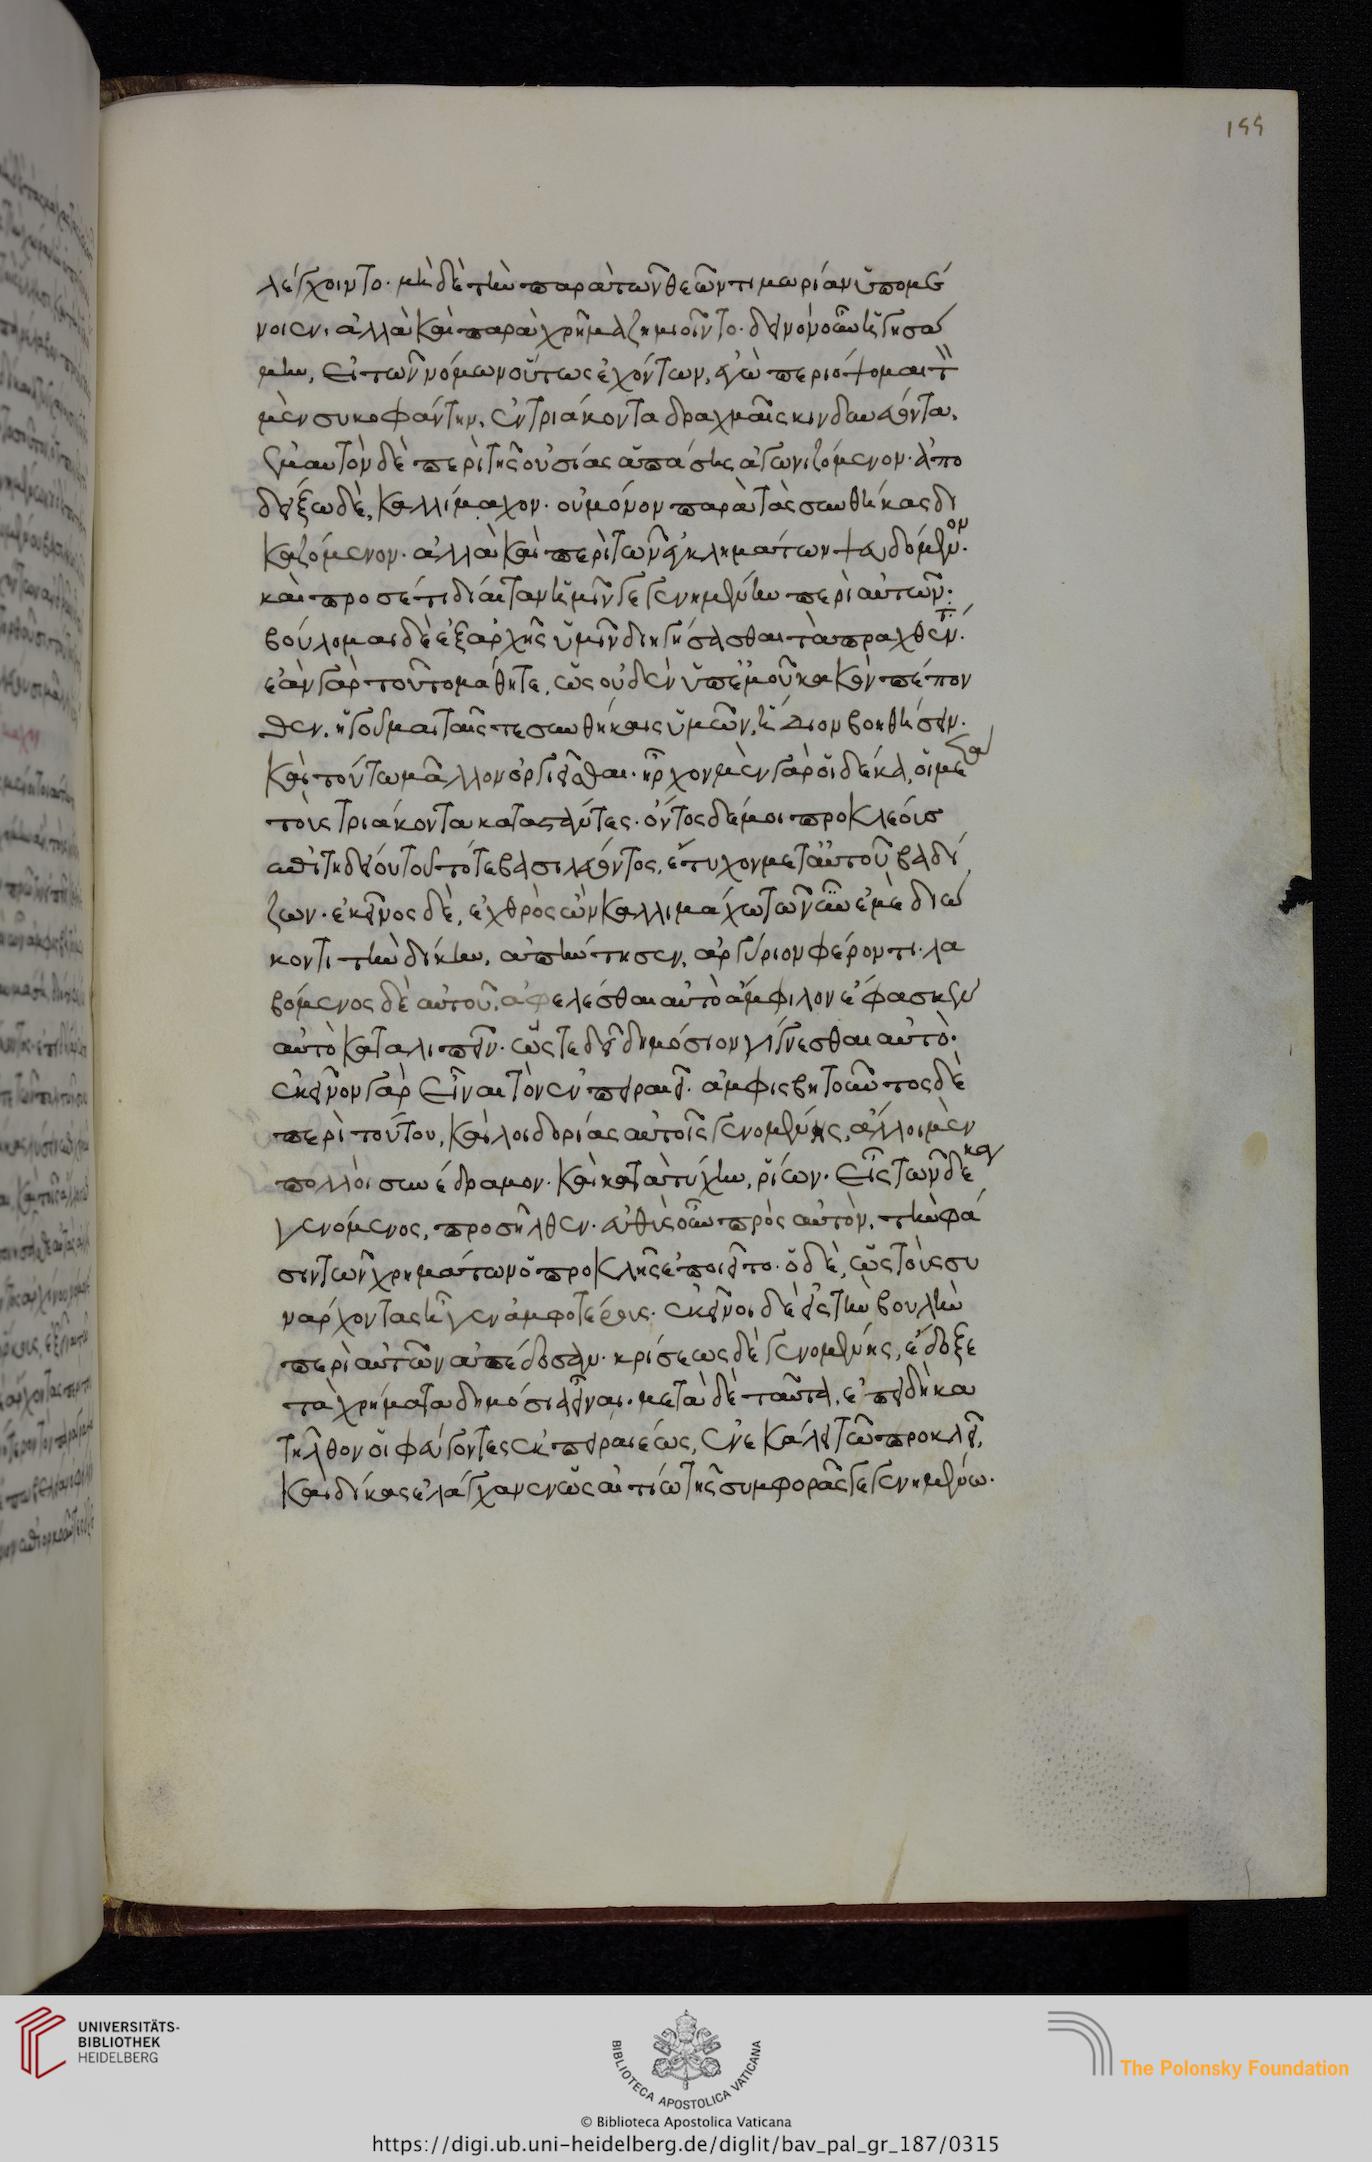 λέγχοιντο· μὴ δὲ τὴν παρὰ τῶν θεῶν τιμωρίαν ὑπομέ
νοιεν· ἀλλὰ καὶ παραχρῆμα ζημιοῖντο. δεινὸν οὖν ἡγησά
μην, εἰ τῶν νόμων οὕτως ἐχόντων, ἐγὼ περιόψομαι τὸν
μὲν συκοφάντην, ἐν τριάκοντα δραχμαῖς κινδυνεύοντα,
ἐμαυτὸν δὲ περὶ τῆς οὐσίας ἁπάσης ἀγωνιζόμενον. ἀπο
δείξω δὲ, Καλλίμαχον· οὐ μόνον παρὰ τὰς συνθήκας δι
καζόμενον· ἀλλὰ καὶ περὶ τῶν ἐγκλημάτων ψευδόμενον.
καὶ προσέτι δίαιταν ἡμῖν γεγενημένην περὶ αὐτῶν:
βούλομαι δὲ ἐξ ἀρχῆς ὑμῖν διηγήσασθαι τὰ πραχθέντ.
ἐὰν γὰρ τοῦτο μάθητε, ὡς οὐδὲν ὑπ' ἐμοῦ κακὸν πέπον
θεν, ἡγοῦμαι ταῖς τε συνθήκαις ὑμῶν, ἥδιον βοηθήσειν.
καὶ τούτω μᾶλλον ὀργιεῖσθαι. ἦρχον μὲν γὰρ οἱ δέκα, οἱ μετὰ
τοὺς τριάκοντα καταστάντες. ὄντος δέ μοι προκλέους
ἐπιτηδείου τοῦ τότε βασιλεύοντος, ἔτυχον μετ' αὐτοῦ βαδί
ζων. ἐκεῖνος δὲ, ἐχθρὸς ὢν Καλλιμάχω τῶ νῦν ἐμὲ διώ
κοντι τὴν δίκην, ἀπήντησεν, ἀργύριον φέροντι. λα
βόμενος δὲ αὐτοῦ, ἀφελέσθαι αὐτὸ ἀμφιλον ἔφασκεν
αὐτὸ καταλιπεῖν. ὥστε δεῖν δημόσιον γίγνεσθαι αὐτό.
ἐκεῖνον γὰρ εἶναι τὸν ἐν πειραιεῖ. ἀμφισβητοῦντος δὲ
περὶ τούτου, καὶ λοιδορίας αὐτοῖς γενομένης, ἄλλοι μὲν
πολλοὶ συνέδραμον. καὶ κατὰ τύχην, ῥίνων. εἷς τῶν δέκα
γενόμενος, προσῆλθεν. εὐθὺς οὖν πρὸς αὐτὸν, τὴν φά
σιν τῶν χρημάτων ὁ προκλῆς ἐποιεῖτο. ὁ δὲ, ὡς τοὺς συ
νάρχοντας ἦγεν ἀμφοτέρους. ἐκεῖνοι δὲ εἰς τὴν βουλὴν
περὶ αὐτῶν ἀπέδοσαν. κρίσεως δὲ γενομένης, ἔδοξε
τὰ χρήματα δημόσι' εἶναι. μετὰ δὲ ταῦτα, ἐπειδὴ κα
τῆλθον οἱ φεύγοντες ἐκ πειραιέως, ἐνεκάλει τῶ προκλεῖ,
καὶ δίκας ἐλάγχανεν ὡς αἰτίω τῆς συμφορᾶς γεγενημένω.
155
UNIVERSITÄTS-
BIBLIOTHEK
HEIDELBERG
BIBLIOTECA APOSTOLICA VATICANA
The Polonsky Foundation
© Biblioteca Apostolica Vaticana
https://digi.ub.uni-heidelberg.de/diglit/bav_pal_gr_187/0315